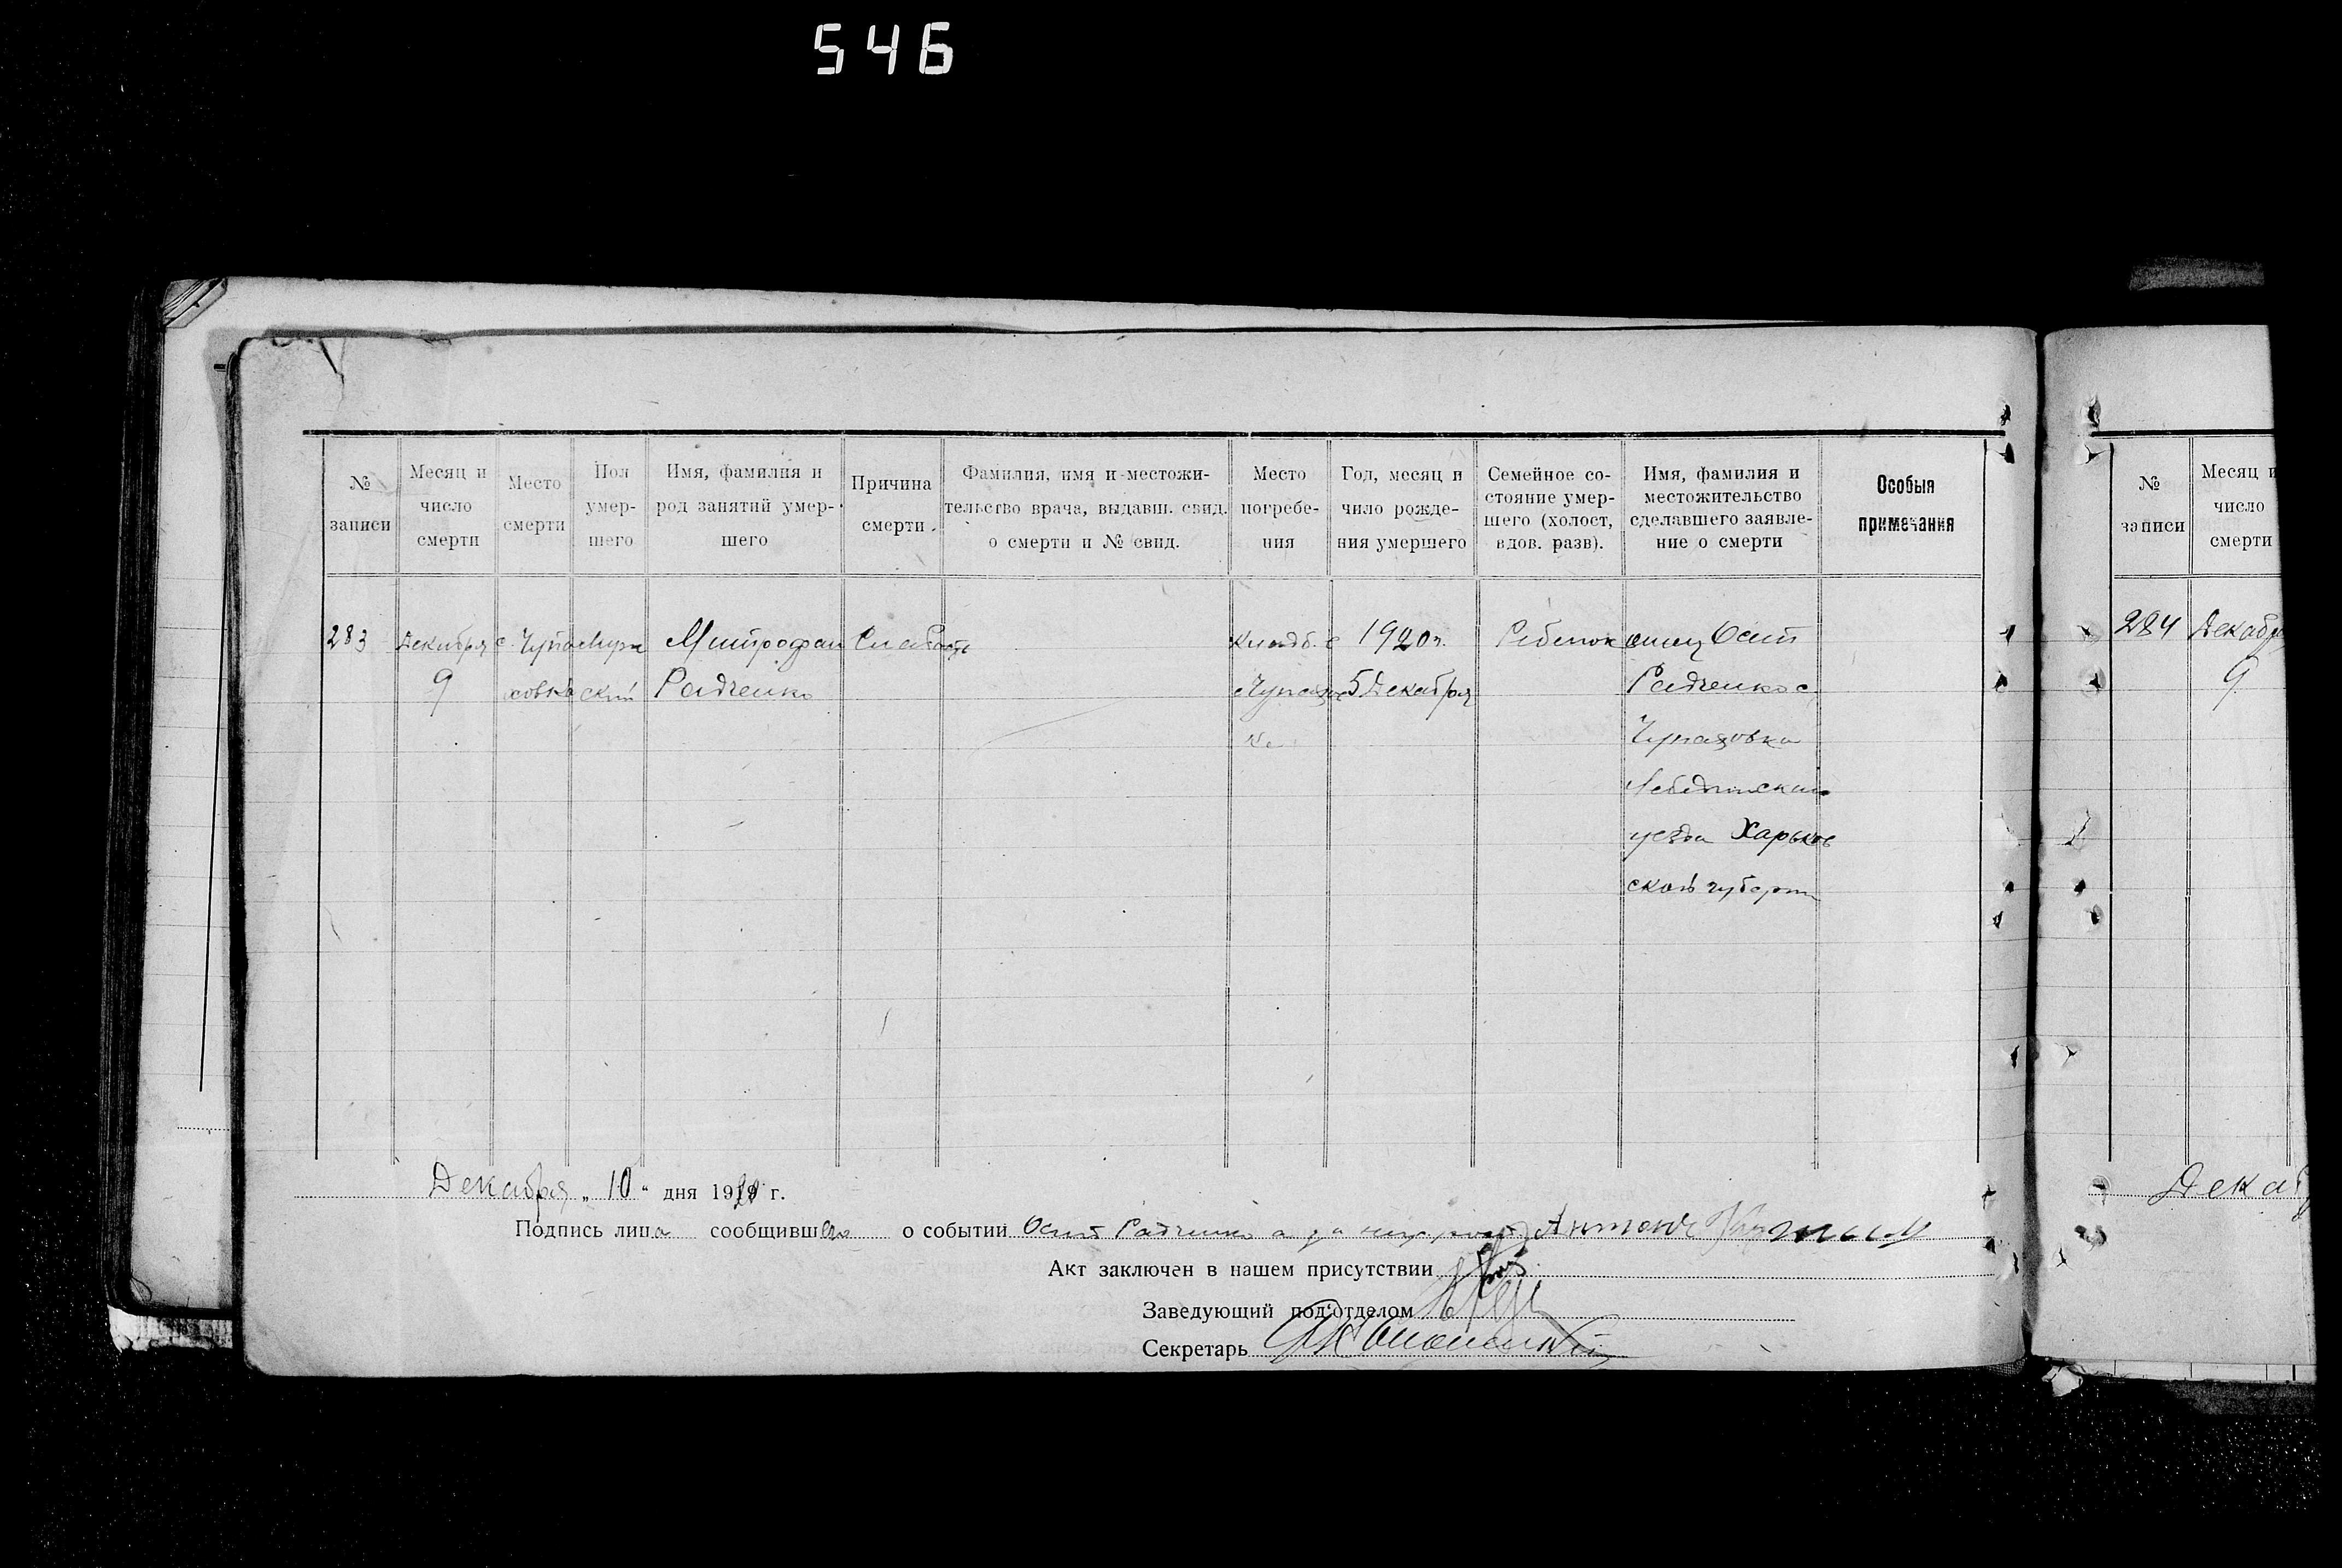 546
№ записи
Месяц и число смерти
Место смерти
Пол умер-шего
Имя, фамилия и род занятий умер-шего
Причина смерти
Фамилия, имя и местожи-тельство врача, выдавш. свид. о смерти и № свид.
Место погребе-ния
Год, месяц и чило рожде-ния умершего
Семейное со-стояние умер-шего (холост, вдов. разв).
Имя, фамилия и местожительство сделавшего заявле-ние о смерти
Особыя примечания
283
Декабря
9
с. Чупа
ховка
Муж
ской
Митрофан
Радченко
Слабость
Кладб. с
Чупахов
ке
1920 г.
5 Декабря
Ребенок
отец Осип
Радченко с.
Чупаховка
Лебединскаго
уезда Харьков
ской губерн
Декабря „ 10 “ дня 1920 г.
Подпись лица сообщившаго о событии Осип Радченко а за него Антон
Акт заключен в нашем присутствии
Заведующий под'отделом
Секретарь
№ записи
Месяц и
число
смерти
284
Декабря
9
Декаб